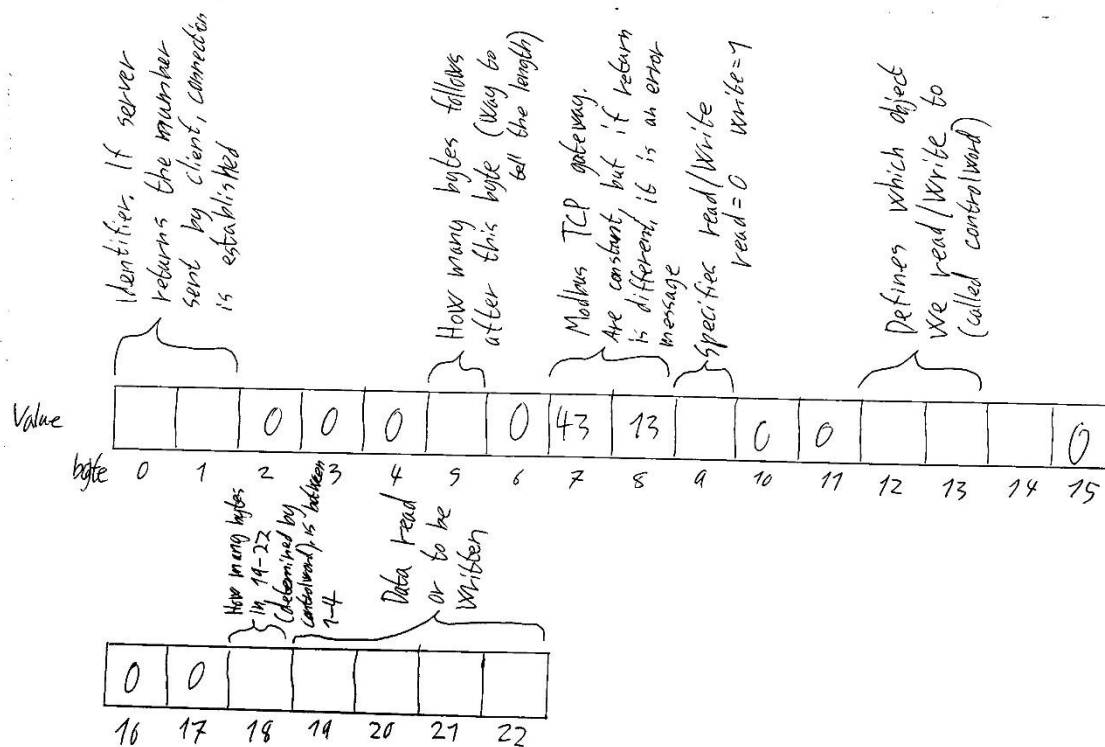 Identifier. If server
returns the number
sent by client, connection
is established
How many bytes follows
after this byte (way to
tell the length)
Modbus TCP gateway.
Are constant, but if return
is different, it is an error
message
Specifies read/write
read=0 write=1
Defines which object
we read/write to
(called controlword)
Value
0 0 0 0 43 13 0 0 0
byte 0 1 2 3 4 5 6 7 8 9 10 11 12 13 14 15
How many bytes
in 19-22
(determined by
controlword), is between
1-4
Data read
or to be
written
0 0
16 17 18 19 20 21 22